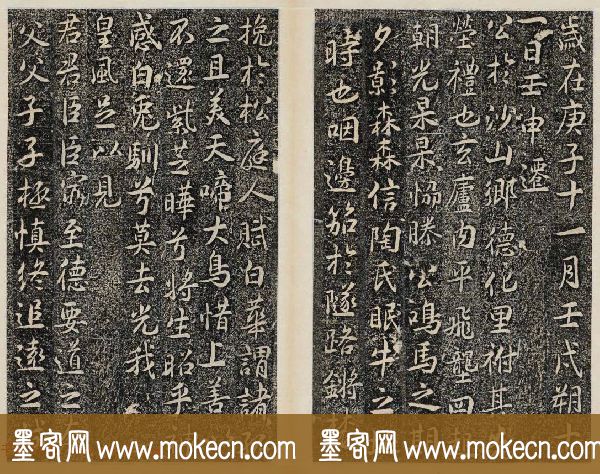 歲在庚子十一月壬戌朔十
一日壬申遷
公於沙山鄉德化里祔其
塋禮也玄廬內平飛壟四
朝光杲杲恊滕公鴻馬之期
夕影森森信陶氏眠牛之
時也咽邊笳於隧路鏘
挽於松庭人賦白華謂諸
之且美天啼大鳥惜上善
不還紫芝曄兮將生昭乎
感白兎馴兮莫去光我
皇風足以見
君君臣臣窮至德要道之
父父子子極慎終追遠之
墨客网 www.mokecn.com 墨客网 www.mokecn.com